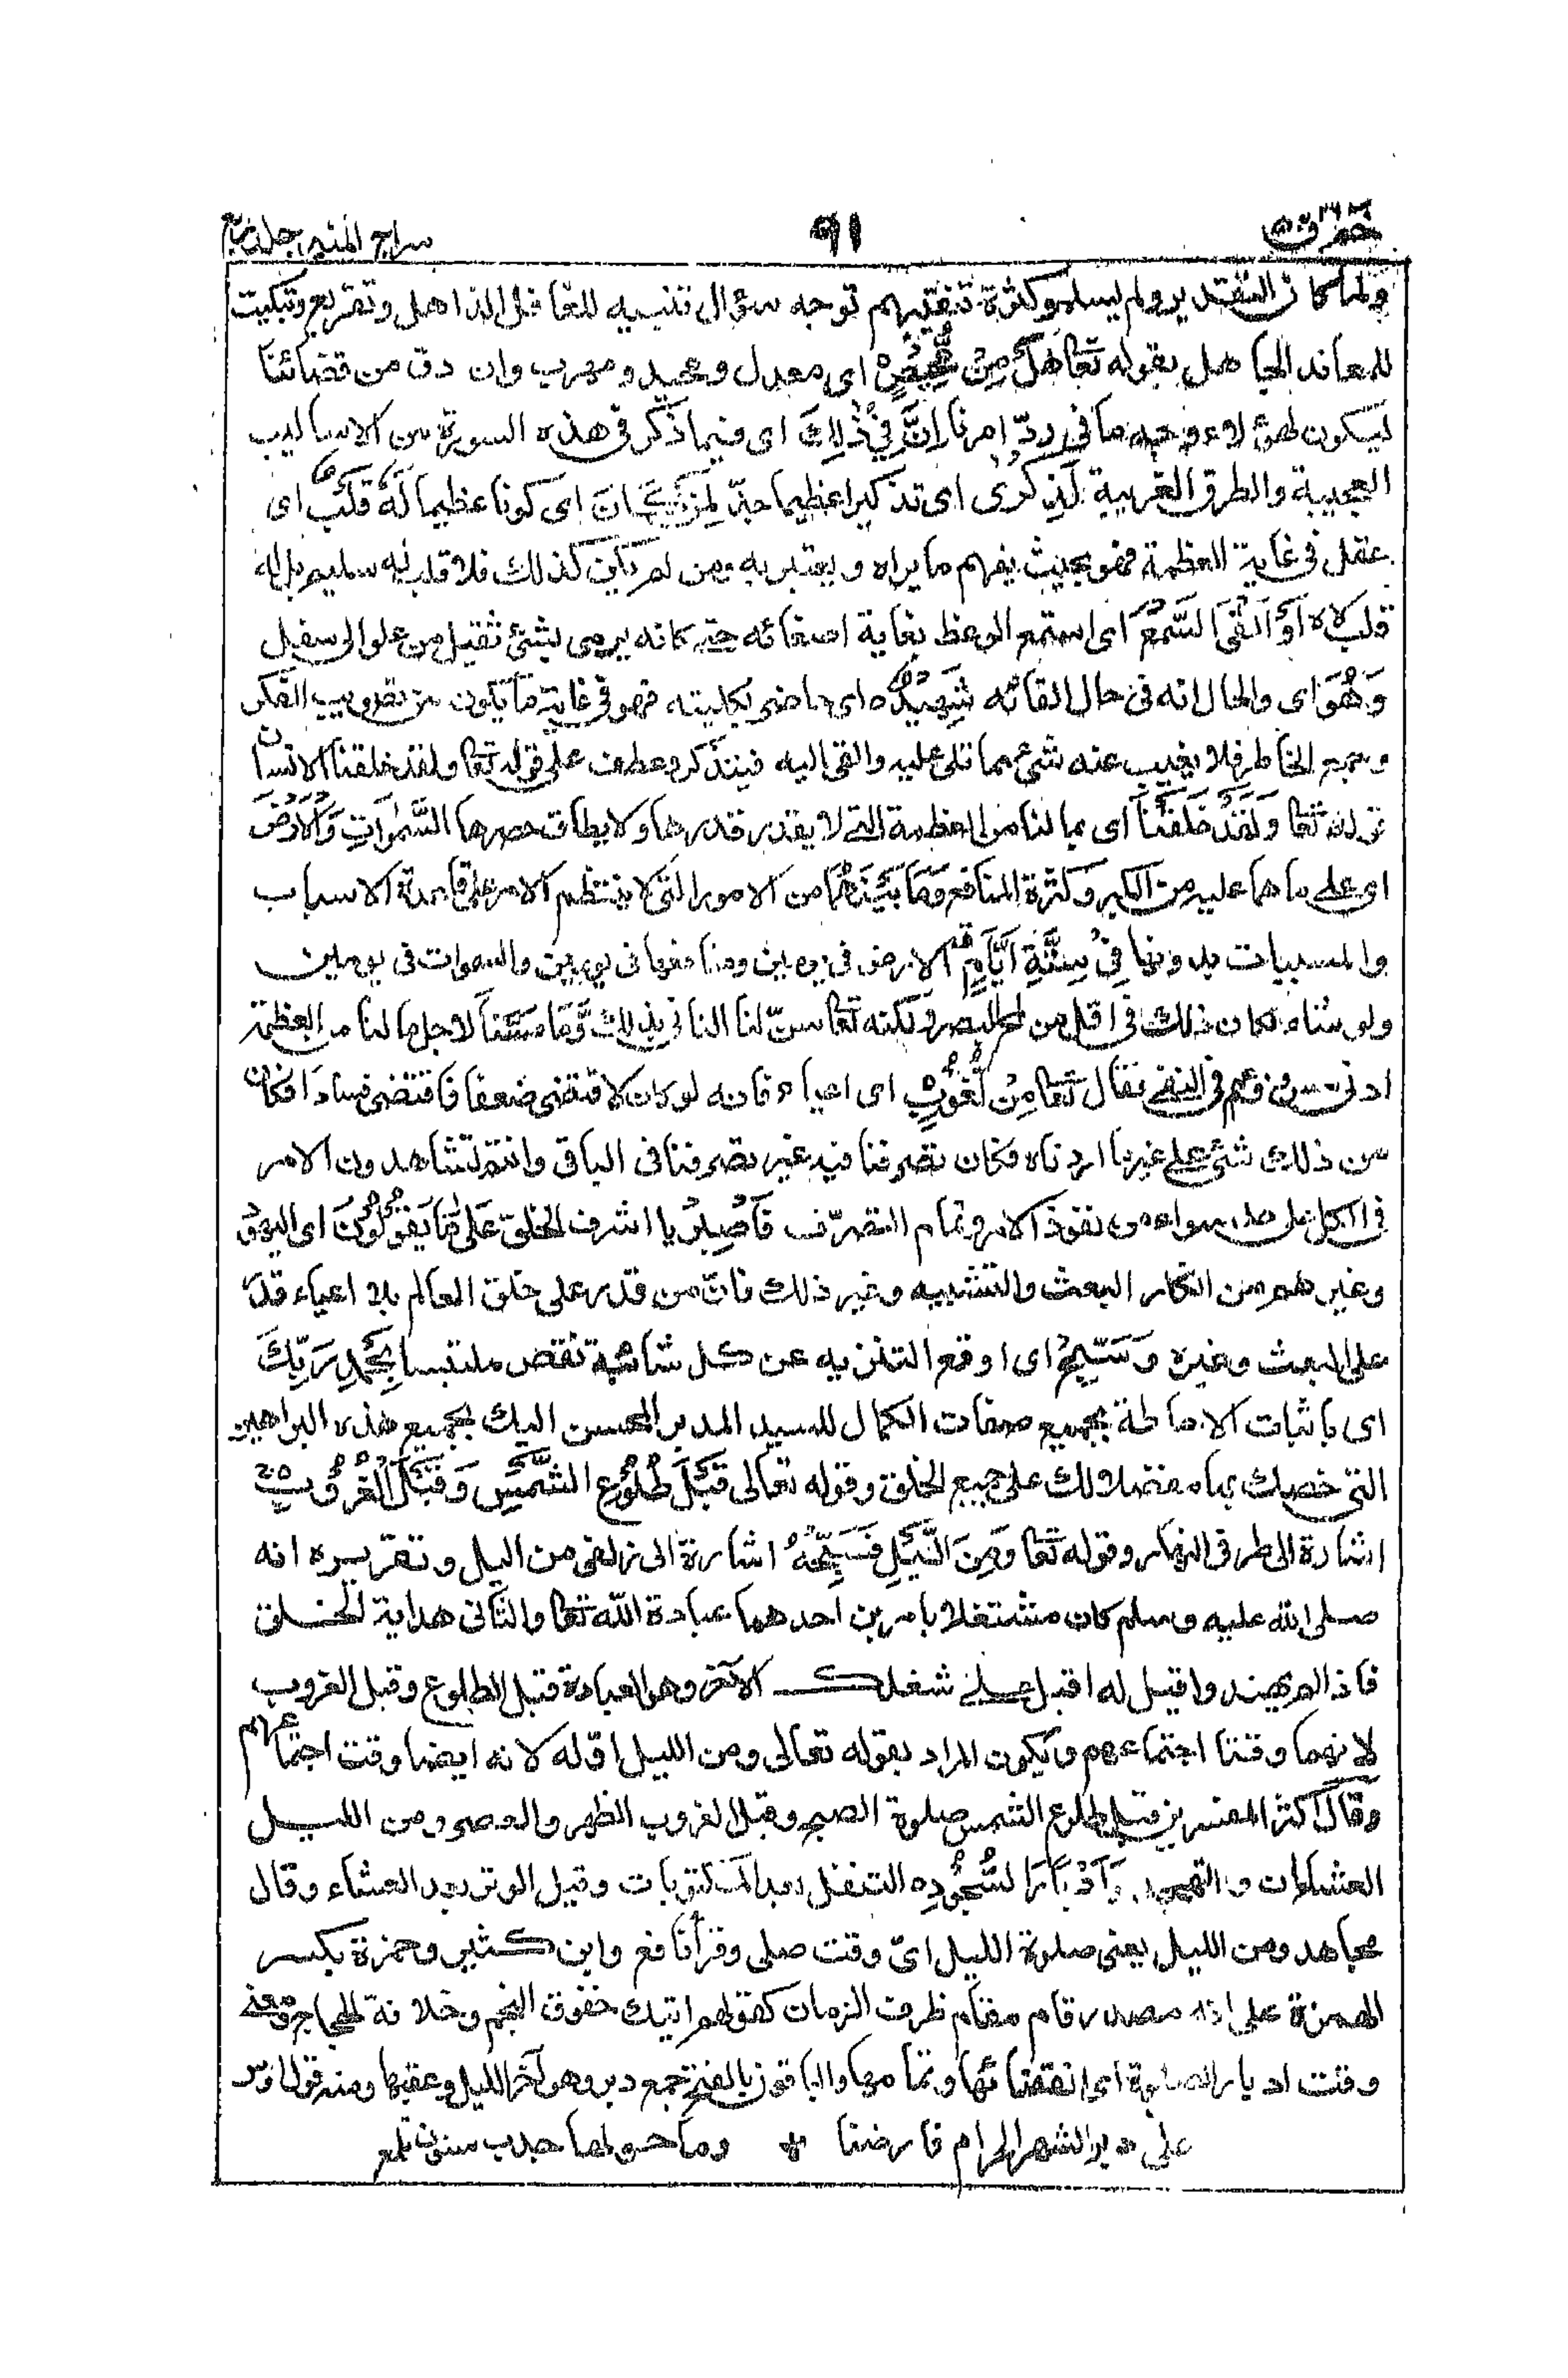 حم ق ٢٦ ٩١ سراج المنير جلد رابع
ولما كان التقدير ولم يسلموا كثرة تنقيبهم توجه سؤال تنبيه للغافل الذاهل وتقريع وتبكيت
للمعاند الجاهل بقوله تعا هَلْ مِنْ مَّحِيْصٍ اى معدل ومحيد ومهرب وان دق من قضائنا
ليكون لهؤلاء وجه ما فى ردّ امرنا اِنَّ فِيْ ذٰلِكَ اى فيما ذكر فى هذه السورة من الاساليب
العجيبة والطرق الغريبة لَذِكْرٰى اى تذكيرا عظيما جدّا لِمَنْ كَانَ اى كونا عظيما لَهٗ قَلْبٌ اى
عقل فى غاية العظمة فهو بحيث يفهم ما يراه ويعتبر به ومن لم يكن كذلك فلا قلب له سليم بل له
قلب لاه اَوْ اَلْقَى السَّمْعَ اى استمع الوعظ بغاية اصغائه حتى كانه يرمى بشئ ثقيل من علو الى سفل
وَهُوَ اى والحال انه فى حال القائه شَهِيْدٌ ٥ اى حاضر بكليته فهو فى غاية ما يكون من تصويب الفكر
وجمع الخاطر فلا يغيب عنه شئ مما تلى عليه والقى اليه فيتذكر وعطف على قوله تعا ولقد خلقنا الانسان
قوله تعا وَلَقَدْ خَلَقْنَا اى بما لنا من العظمة التى لا يقدر قدرها ولا يطاق حصرها السَّمٰوَاتِ وَالْاَرْضَ
اى على ما هما عليه من الكبر وكثرة المنافع وَمَا بَيْنَهُمَا من الامور التى لا ينتظم الامر على قاعدة الاسباب
والمسببات بدونها فِيْ سِتَّةِ اَيَّامٍ الارض فى يومين ومنافعها فى يومين والسموات فى يومين
ولو شاء لكان ذلك فى اقل من لمح البصر ولكنه تعا سنّ لنا التانى بذلك وَّمَا مَسَّنَا لاجل ما لنا من العظمة
ادنى مس وعم فى النفى فقال تعا مِنْ لُّغُوْبٍ اى اعياء فانه لو كان لاقتضى ضعفا فاقتضى فسادا فكان
من ذلك شئ على غير ما اردناه فكان تصرفنا فيه غير تصرفنا فى الباقى وانتم تشاهدون الامر
فى الكل على حد سواء من نفوذ الامر وتمام التصرّف فَاصْبِرْ يا اشرف الخلق عَلٰى مَا يَقُوْلُوْنَ اى اليهود
وغيرهم من انكار البعث والتشبيه وغير ذلك فانّ من قدر على خلق العالم بلا اعياء قدر
على البعث وغيره وَسَبِّحْ اى اوقع التنزيه عن كل شائبة نقص ملتبسا بِحَمْدِ رَبِّكَ
اى باثبات الاحاطة بجميع صفات الكمال للسيد المدبر المحسن اليك بجميع هذه البراهين
التى خصك بها مفضلا لك على جميع الخلق وقوله تعالى قَبْلَ طُلُوْعِ الشَّمْسِ وَقَبْلَ الْغُرُوْبِ ٥
اشارة الى طرفى النهار وقوله تعا وَمِنَ الَّيْلِ فَسَبِّحْهُ اشارة الى زلفى من اليل وتقريره انه
صلى الله عليه وسلم كان مشتغلا بامرين احدهما عبادة الله تعا والثانى هداية الخلق
فاذا لم يهتدوا قيل له اقبل على شغلك الآخر وهو العبادة قبل الطلوع وقبل الغروب
لانهما وقتا اجتماعهم ويكون المراد بقوله تعالى ومن الليل اوّله لانه ايضا وقت اجتماعهم
وقال اكثر المفسرين قبل طلوع الشمس صلوة الصبح وقبل الغروب الظهر والعصر ومن الليل
العشاءان والتهجد وَاَدْبَارَ السُّجُوْدِ ٥ التنفل بعد المكتوبات وقيل الوتر بعد العشاء وقال
مجاهد ومن الليل يعنى صلوة الليل اىّ وقت صلى وقرأ نافع وابن كثير وحمزة بكسر
الهمزة على انه مصدر قام مقام ظرف الزمان كقولهم اتيك خفوق النجم وخلافة الحجاج ومعنى
وقت ادبار الصلوة اى انقضائها وتمامها والباقون بالفتح جمع دبر وهو آخر الليل وعقبها ومنه قول اوس
على دبر الشهر الحرام فارضنا ٭ وما حولها جدب سنون تلمع